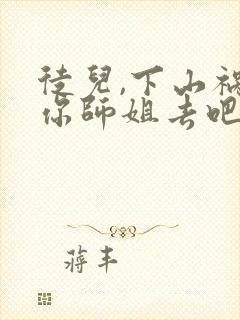 徒兒,下山禍
你師姐去吧
蔣丰